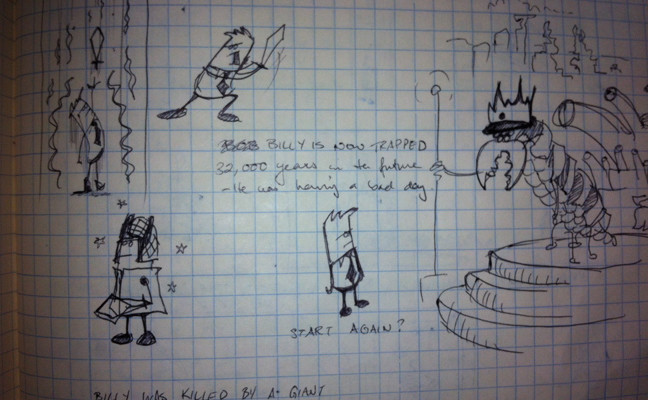 BILLY IS NOW TRAPPED
32,000 years in the future
- He was having a bad day
START AGAIN?
BILLY WAS KILLED BY A GIANT